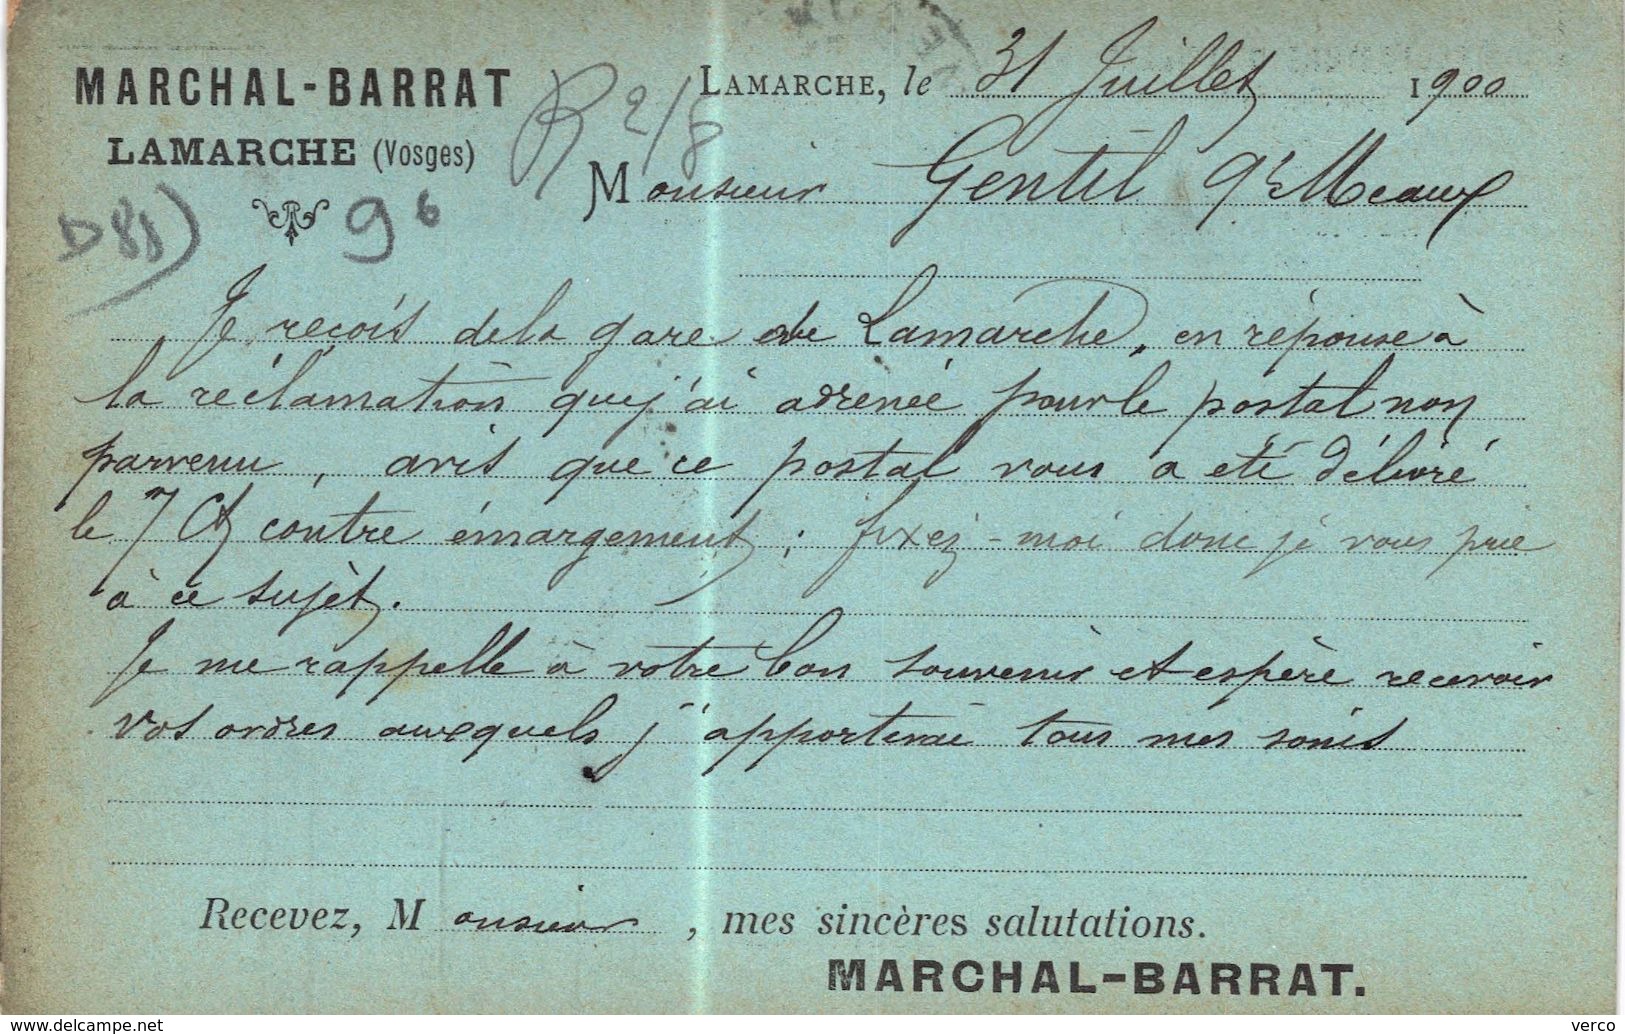 MARCHAL-BARRAT
LAMARCHE (Vosges)
R 2/8
D88)
96
LAMARCHE, le 31 Juillet 1900
Monsieur Gentil à Meaux
Je reçois de la gare de Lamarche, en réponse à
la réclamation que j'ai adressée pour le postal non
parvenu, avis que ce postal vous a été délivré
le 7 ct contre émargement ; fixez-moi donc je vous prie
à ce sujet.
Je me rappelle à votre bon souvenir et espère recevoir
vos ordres auxquels j'apporterai tous mes soins
Recevez, Monsieur, mes sincères salutations.
MARCHAL-BARRAT.
www.delcampe.net
verco